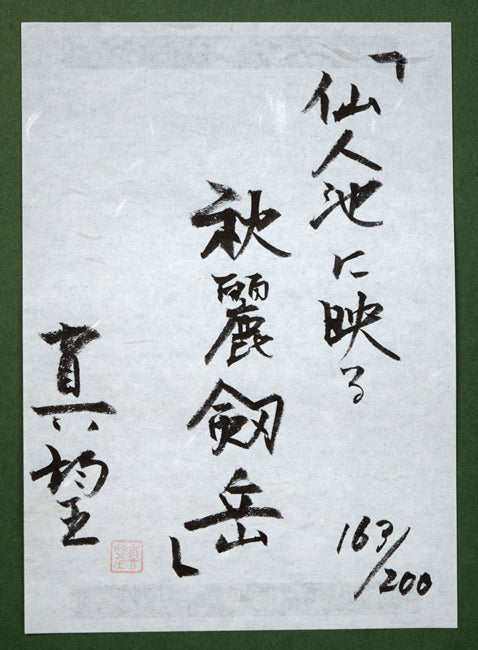 「仙人池に映る
秋麗剱岳」
真望
163/200